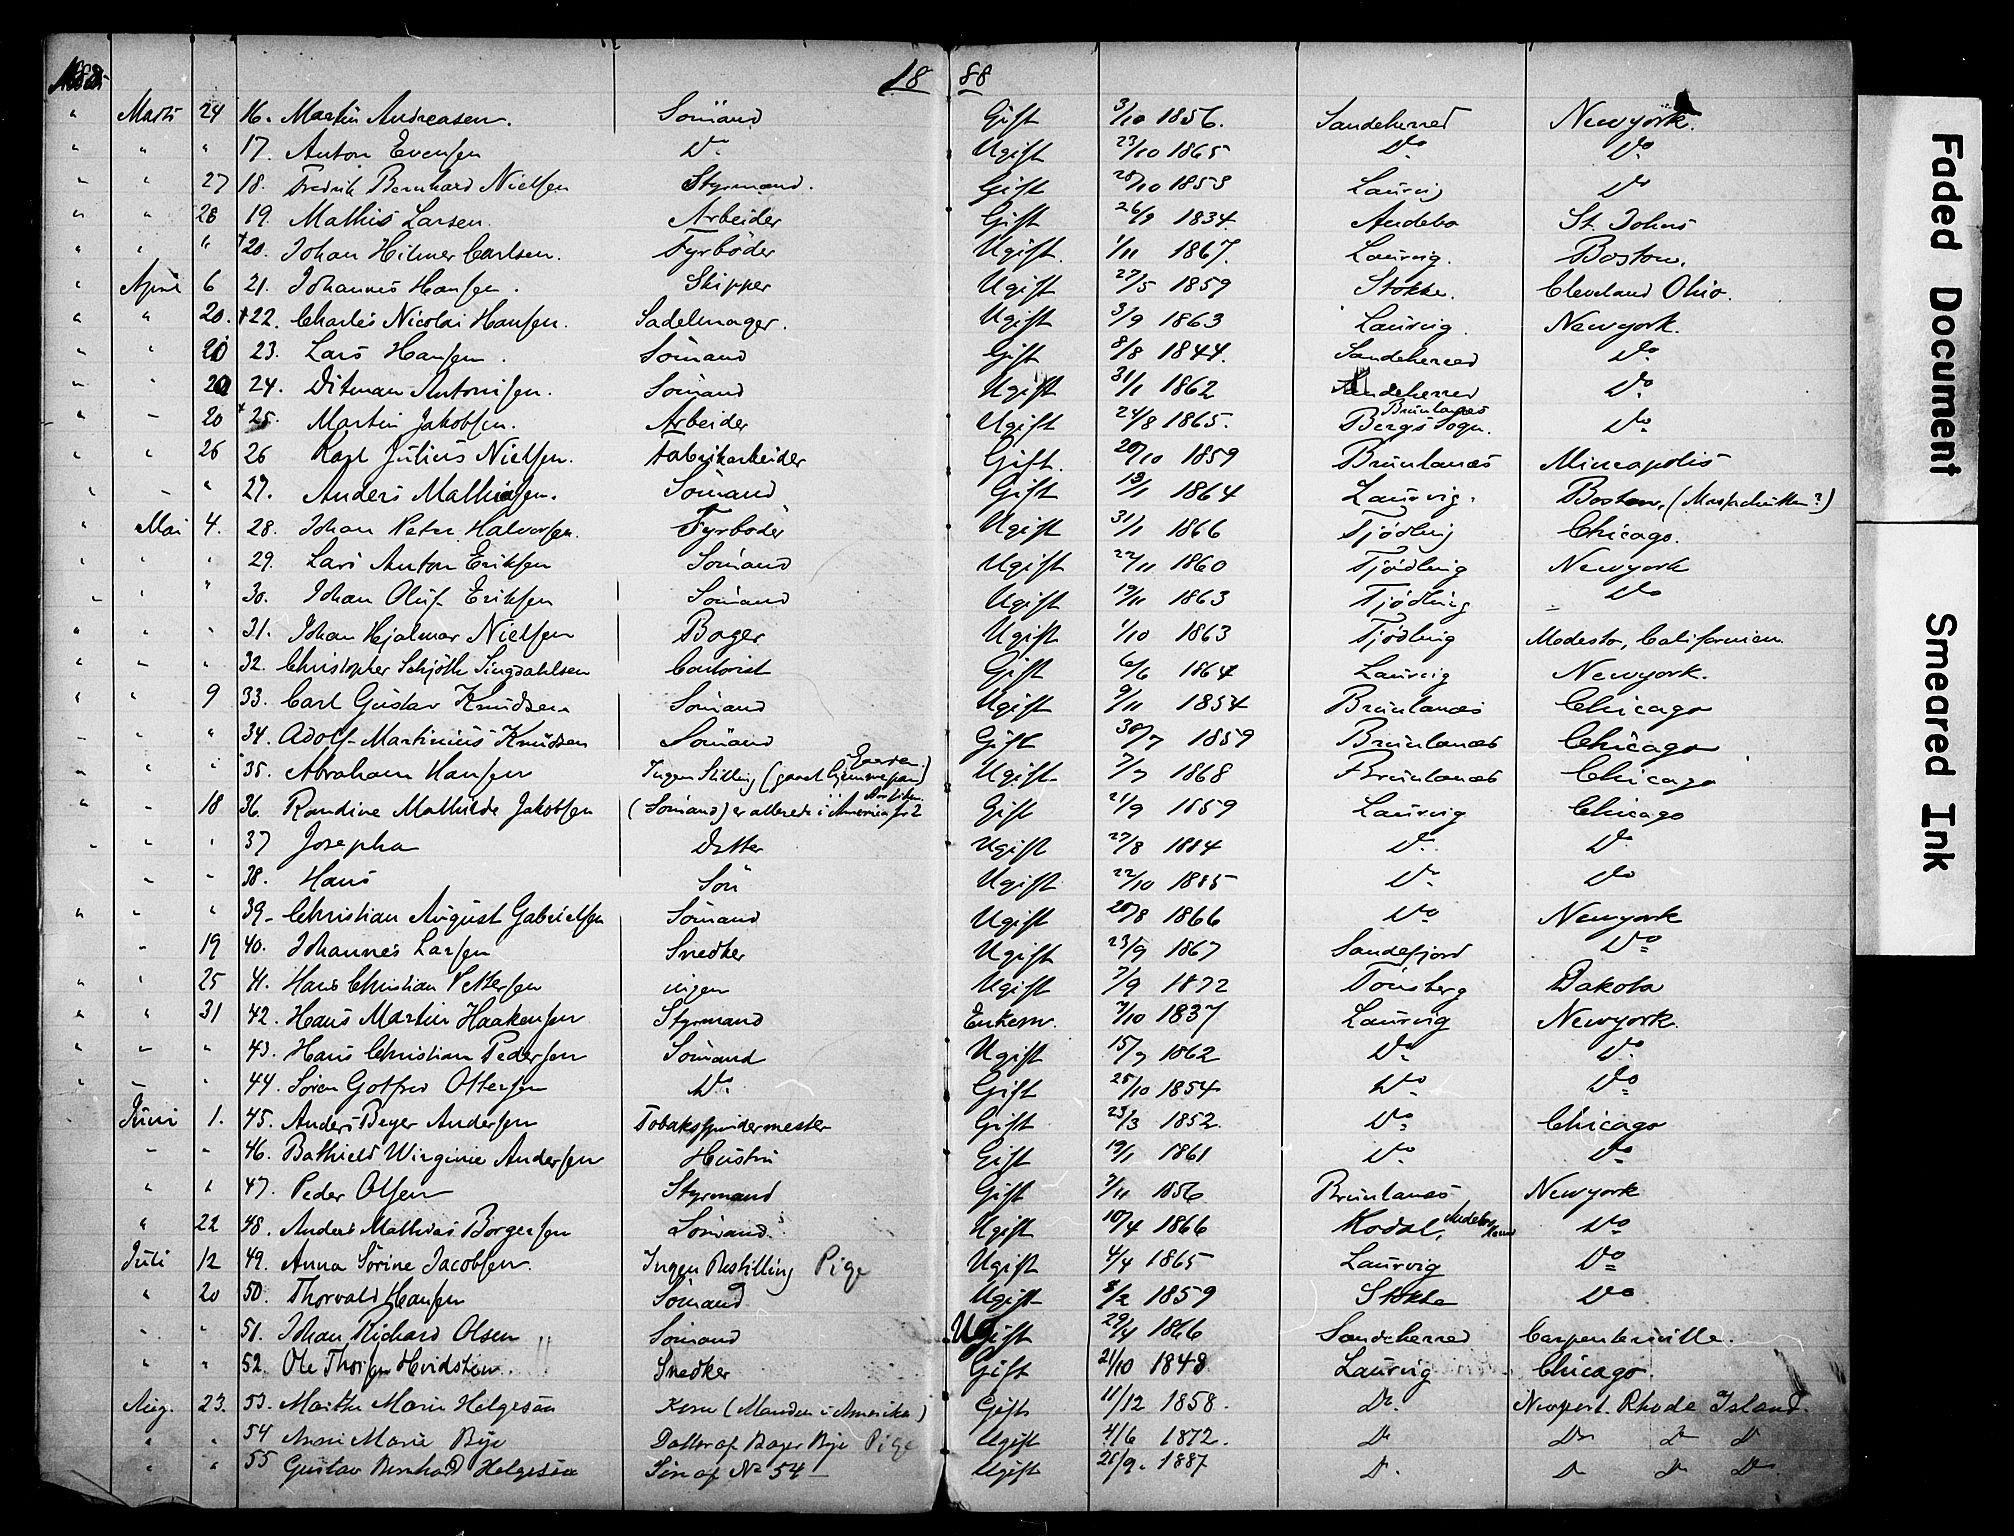 18 88
" Marts 24 16. Martin Andreasen. Sömand Gift 3/10 1856. Sandeherred Newyork.
" " " 17. Anton Evensen Do Ugift 23/10 1865 Do Do
" " 27 18. Fredrik Bernhard Nielsen Styrmand. Gift 28/10 1853 Laurvig Do
" " 28 19. Mathis Larsen. Arbeider Gift 26/9 1834. Andebo St. Johns
" " " +20. Johan Hilmer Carlsen. Fyrböder Ugift. 1/11 1867. Laurvig. Boston.
" April 6 21. Johannes Hansen. Skipper Ugift 27/5 1859 Stokke. Cleveland Ohio.
" " 20. +22. Charles Nicolai Hansen. Sadelmager. Ugift 3/9 1863 Laurvig. Newyork.
" " 20 23. Lars Hansen. Sömand Gift 8/8 1844. Sandeherred Do
" " 20 24. Ditman Antonisen. Sömand Ugift 31/1 1862 Sandeherred Do
" " 20 +25. Martin Jakobsen. Arbeider Ugift 24/8 1865. Bergs Sogn. Brunlanæs Do
" " 26 26 Karl Julius Nielsen. Fabrikarbeider Gift. 20/10 1859 Brunlanæs Mineapolis
" " " 27. Anders Mathiasen. Sömand Gift 13/1 1864 Laurvig. Boston, (Massachutten?)
" Mai 4. 28. Johan Peter Halvorsen. Fyrböder Ugift 31/1 1866 Tjödling Chicago.
" " " 29. Lars Anton Eriksen Sömand Ugift 22/11 1860 Tjödling Newyork
" " " 30. Johan Oluf Eriksen Sömand Ugift 19/11 1863 Tjödling Do
" " " 31. Johan Hjalmar Nielsen Bager Ugift 1/10 1863 Tjödling Modesto, Californien
" " " 32. Christopher Schjöth Singdahlsen Contorist Gift 6/6 1864 Laurvig Newyork.
" " 9 33. Carl Gustav Knudsen Sömand Ugift 9/11 1854 Brunlanæs Chicago
" " " 34. Adolf Martinius Knudsen Sömand Gift 30/7 1859 Brunlanæs Chicago
" " " 35. Abraham Hansen Ingen Stilling (gaaet hjemme paa Gaarden) Ugift 7/7 1868 Brunlanæs Chicago
" " 18 36. Randine Mathilde Jakobsen (Sömand) er allerede i America for 2 Gift 21/9 1859 Laurvig Chicago
" " " 37 Josepha Datter Ugift 27/8 1884 Do Do
" " 38. Hans Sön Ugift 22/10 1885 Do Do
" " " 39. Christian August Gabrielsen Sömand Ugift 20/8 1866 Do Newyork
" 19 40. Johannes Larsen Snedker Ugift 23/9 1867 Sandefjord Do
" " 25 41. Hans Christian Pettersen ingen Ugift 7/9 1872 Tönsberg Dakota
" " 31 42. Hans Martin Haakensen Styrmand Enkem. 7/10 1837 Laurvig Newyork.
" " " 43. Hans Christian Pedersen Sömand Ugift 15/7 1862 Do Do
" " " 44. Sören Gotfred Ottersen Do Gift 25/10 1854 Do Do
" Juni 1. 45. Anders Beyer Andersen Tobakspindermester Gift 23/3 1852. Do Chicago
" " 46. Bathield Wirginie Andersen Hustru Gift 19/1 1861 Do Do
" " 47. Peder Olsen Styrmand Gift 7/11 1856 Brunlanæs Newyork
" 22 48. Anders Mathias Borgersen Sömand Ugift 10/4 1866 Kodal, Andebo Do
Juli 12 49. Anna Sörine Jacobsen. Ingen Bestilling Pige Ugift 4/4 1865 Laurvig Do
" 20 50. Thorvald Hansen Sömand Ugift 8/2 1859 Stokke Do
" " 51. Johan Richard Olsen Sömand Ugift 29/4 1866 Sandeherred Carpenterville.
" " 52. Ole Thorsen Hvidsten Snedker Gift 21/10 1848 Laurvig Chicago.
Aug. 23. 53. Marthe Marie Helgesen Kone (Manden i Amerika) Gift 11/12 1858. Do. Newport Rhode Island.
" " 54 Anne Marie Bye Datter af Bager Bye Pige Ugift 4/6 1872. Do Do Do Do
" " 55 Gustav Bernhard Helgesen Sön af No 54 Ugift 25/9. 1887 Do Do Do Do
Faded Document
Smeared Ink